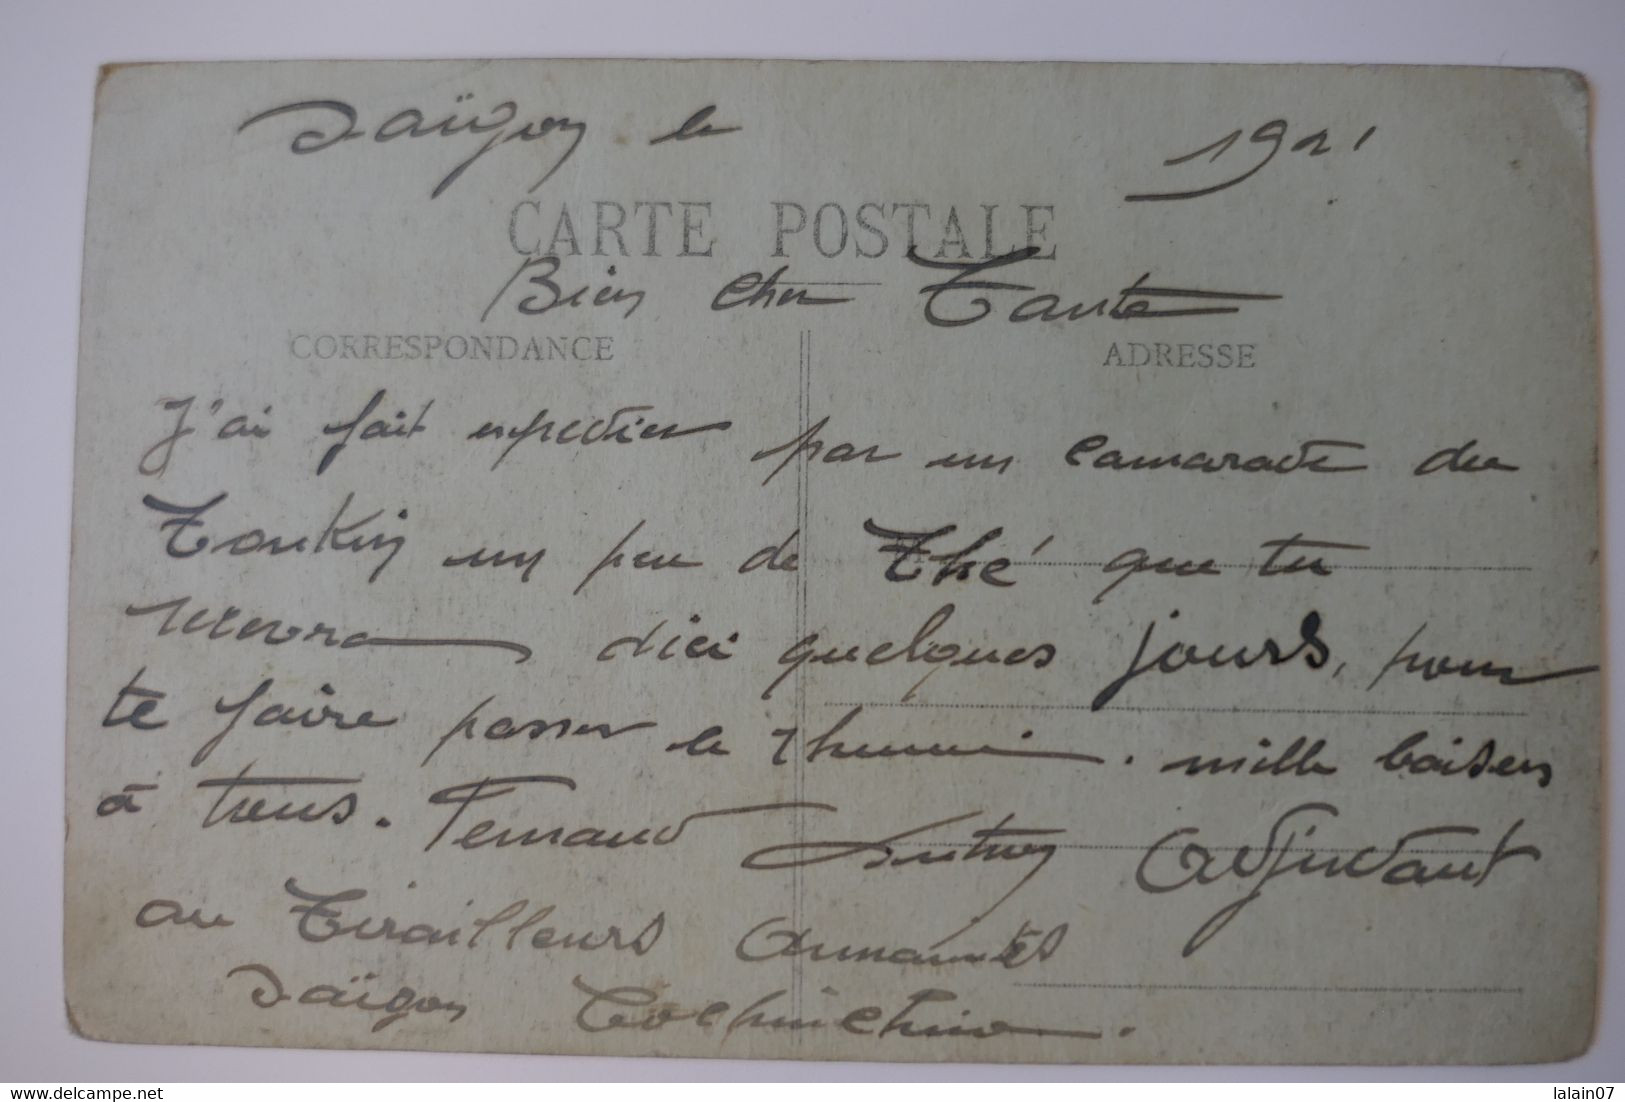 Saïgon le 1921
CARTE POSTALE
Bien cher Tante
CORRESPONDANCE ADRESSE
J'ai fait expedier par un camarade du
Tonkin un peu de Thé que tu
recevra dici quelques jours, pour
te faire passer le rhume. mille baisers
à tous. Fernand Adjudant
au Tirailleurs Annamites
Saïgon Cochinchine.
https://www.delcampe.net
lalain07